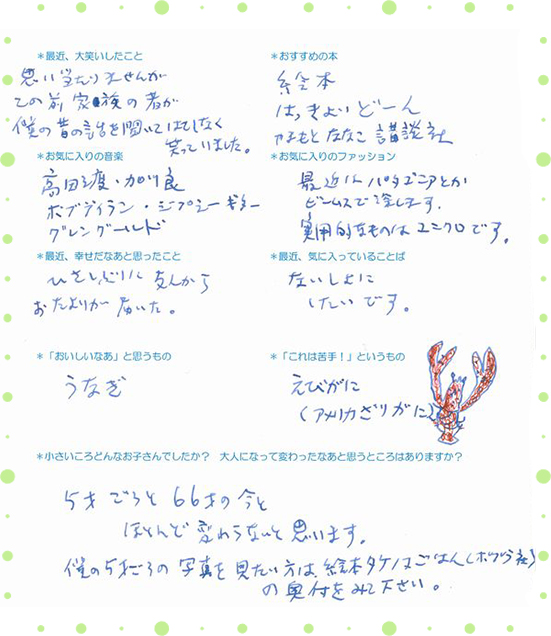 *最近、大笑いしたこと
思い当たりませんが
この前 家族の者が
僕の昔の話を聞いてはてしなく
笑っていました。
*おすすめの本
絵本
はっきよい どーん
かねもと ななこ 講談社
*お気に入りの音楽
高田渡・加川良
ボブディラン・ジプシーギター
グレングールド
*お気に入りのファッション
最近は パタゴニアとか
ビームスで済します。
実用的なものはユニクロです。
*最近、幸せだなあと思ったこと
ひさしぶりに 友人から
おたよりが 届いた。
*最近、気に入っていることば
ないしょに
したいです。
*「おいしいなあ」と思うもの
うなぎ
*「これは苦手!」というもの
えびがに
(アメリカざりがに)
*小さいころどんなお子さんでしたか? 大人になって変わったなあと思うところはありますか?
5才ごろと 66才の今と
ほとんど 変わらないと思います。
僕の5才ごろの 写真を 見たい方は、絵本タケノコごはん(ポプラ社)
の奥付をみて下さい。